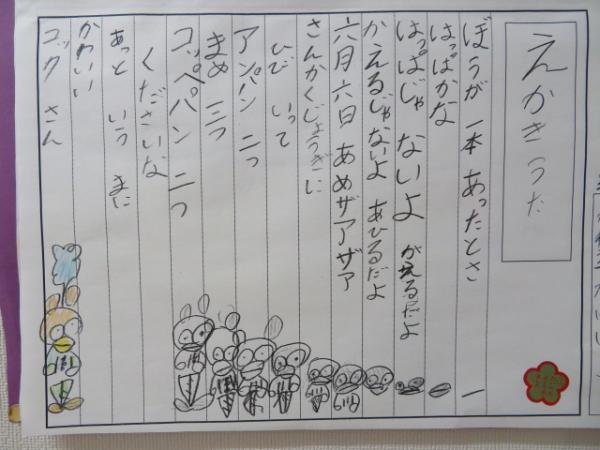 えかきうた
ぼうが一本あったとさ
はっぱかな
はっぱじゃないよ かえるだよ
かえるじゃないよ あひるだよ
六月六日 あめザアザア
さんかくじょうぎに
ひび いって
アンパン 二つ
まめ 三つ
コッペパン 二つ
くださいな
あっと いう まに
かわいい
コック さん